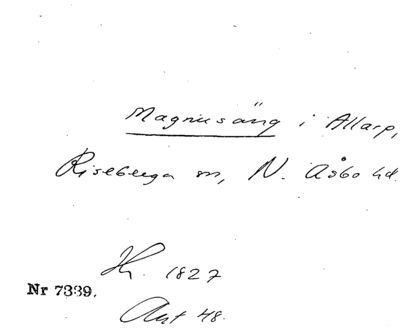 Magnusäng i Allarp,
Riseberga sn, N. Åsbo hd.
Hr. 1827
Nr 7339.
Art 48.